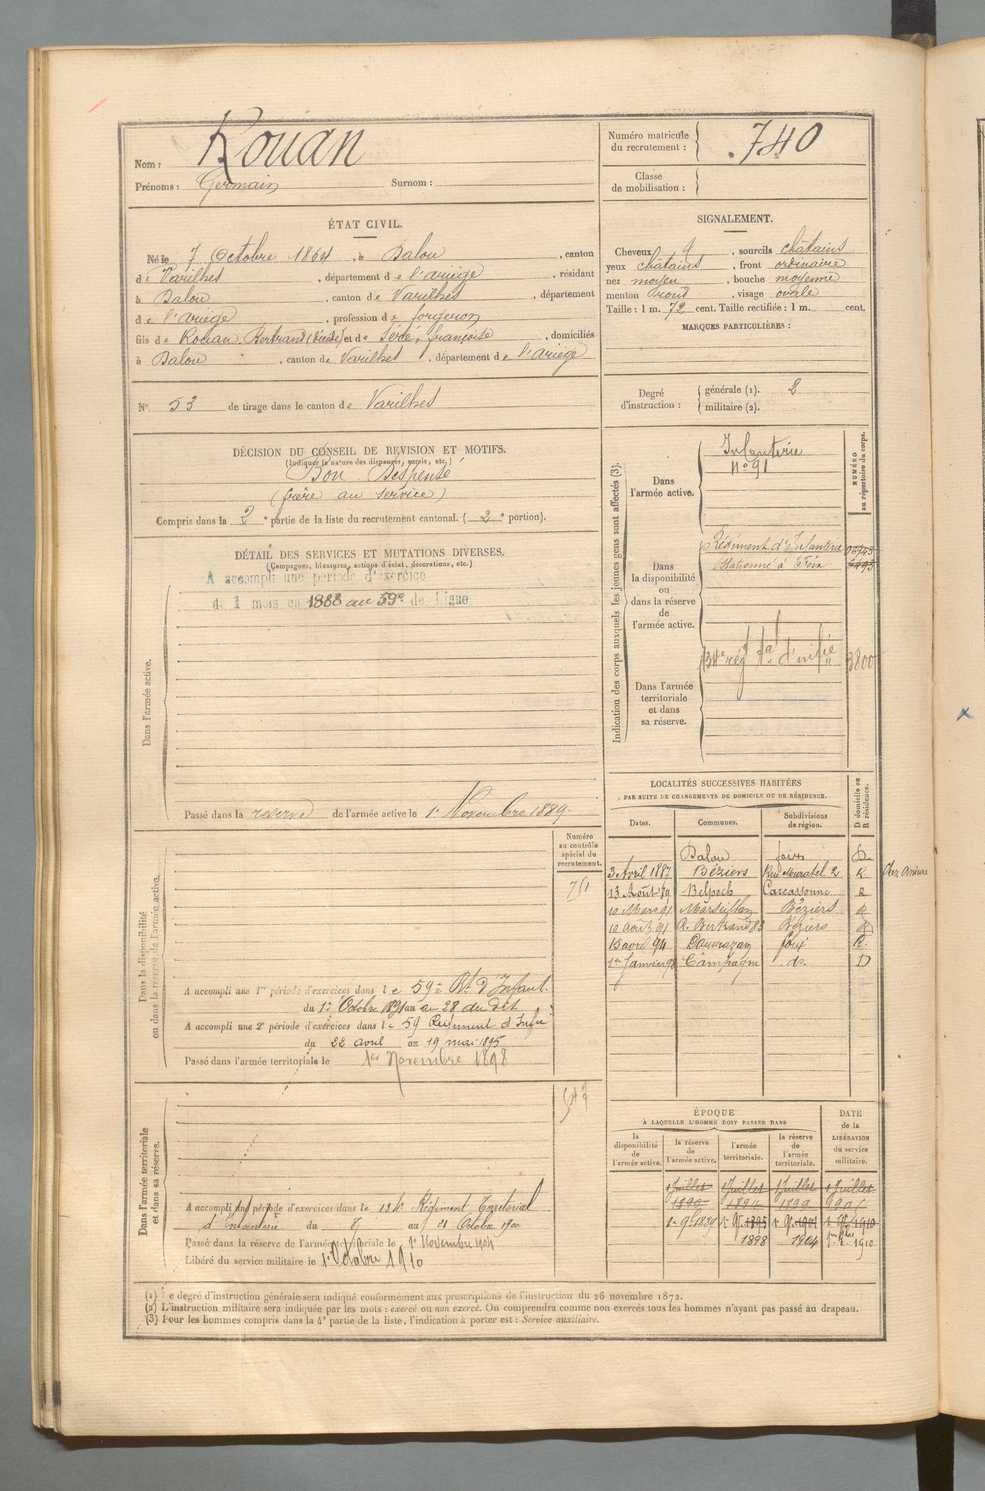 Nom : Rouan
Prénoms : Germain Surnom :
Numéro matricule du recrutement : 740
Classe de mobilisation :
ÉTAT CIVIL.
Né le 7 Octobre 1864, à Dalou, canton
de Varilhes, département de l'ariège, résidant
à Dalou, canton de Varilhes, département
de l'ariège, profession de forgeron
fils de Rouan, Bertrand (décédé) et de Sérdé, françoise, domiciliés
à Dalou, canton de Varilhes, département de l'ariège
N° 53 de tirage dans le canton de Varilhes
SIGNALEMENT.
Cheveux, sourcils châtains
yeux châtains, front ordinaire
nez moyen, bouche moyenne
menton rond, visage ovale
Taille : 1 m. 72 cent. Taille rectifiée : 1 m. cent.
MARQUES PARTICULIÈRES :
Degré d'instruction : générale (1). 2
militaire (2).
DÉCISION DU CONSEIL DE REVISION ET MOTIFS.
(Indiquer la nature des dispenses, sursis, etc.)
Bon Dispensé
(frère au service)
Compris dans la 2e partie de la liste du recrutement cantonal. (2e portion).
DÉTAIL DES SERVICES ET MUTATIONS DIVERSES.
(Campagnes, blessures, actions d'éclat, décorations, etc.)
A accompli une période d'exercice
de 1 mois en 1888 au 59e de Ligne
Dans l'armée active.
Passé dans la reserve de l'armée active le 1er Novembre 1889.
Indication des corps auxquels les jeunes gens sont affectés (3).
NUMÉRO au répertoire du corps.
Dans l'armée active.
Infanterie
N° 91
Dans la disponibilité ou dans la réserve de l'armée active.
Régiment d'Infanterie
Stationné à Foix
Dans l'armée territoriale et dans sa réserve.
134e rég t al d'inf ie
3800
LOCALITÉS SUCCESSIVES HABITÉES
PAR SUITE DE CHANGEMENTS DE DOMICILE OU DE RÉSIDENCE.
Dates. Communes. Subdivisions de région. D domicile ou R résidence.
Dalou foix D
3 Avril 1887 Béziers R
13 Août 89 Belpech Carcassonne R
10 Mars 91 Marseillan Béziers R
10 août 91 R. Bertrand 83 Béziers R
15 avril 94 foix R.
1er Janvier 98 Campagne do. D
Numéro au contrôle spécial du recrutement.
751
Dans la disponibilité ou dans la réserve de l'armée active.
A accompli une 1re période d'exercices dans le 59e Rt d'Infant.
du 1er Octobre 1891 au 28 du dit
A accompli une 2e période d'exercices dans le 59 Régiment d'Infie
du 22 avril au 19 mai 1895
Passé dans l'armée territoriale le 1er Novembre 1898
Dans l'armée territoriale et dans sa réserve.
A accompli une période d'exercices dans le 134e Régiment Territorial
d'Infanterie du 8 au 21 Octobre 1900
Passé dans la réserve de l'armée territoriale le 1er Novembre 1904
Libéré du service militaire le 1er Octobre 1910
ÉPOQUE
À LAQUELLE L'HOMME DOIT PASSER DANS
DATE de la LIBÉRATION du service militaire.
la disponibilité de l'armée active. la réserve de l'armée active. l'armée territoriale. la réserve de l'armée territoriale.
1 Juillet 1 Juillet 1 Juillet 1 Juillet
1890 1894 1899
1er 9bre 1889 1er 9bre 1895 1er 9bre 1901 1910
1898 1904 1910
(1) Le degré d'instruction générale sera indiqué conformément aux prescriptions de l'instruction du 26 novembre 1872.
(2) L'instruction militaire sera indiquée par les mots : exercé ou non exercé. On comprendra comme non exercés tous les hommes n'ayant pas passé au drapeau.
(3) Pour les hommes compris dans la 4e partie de la liste, l'indication à porter est : Service auxiliaire.